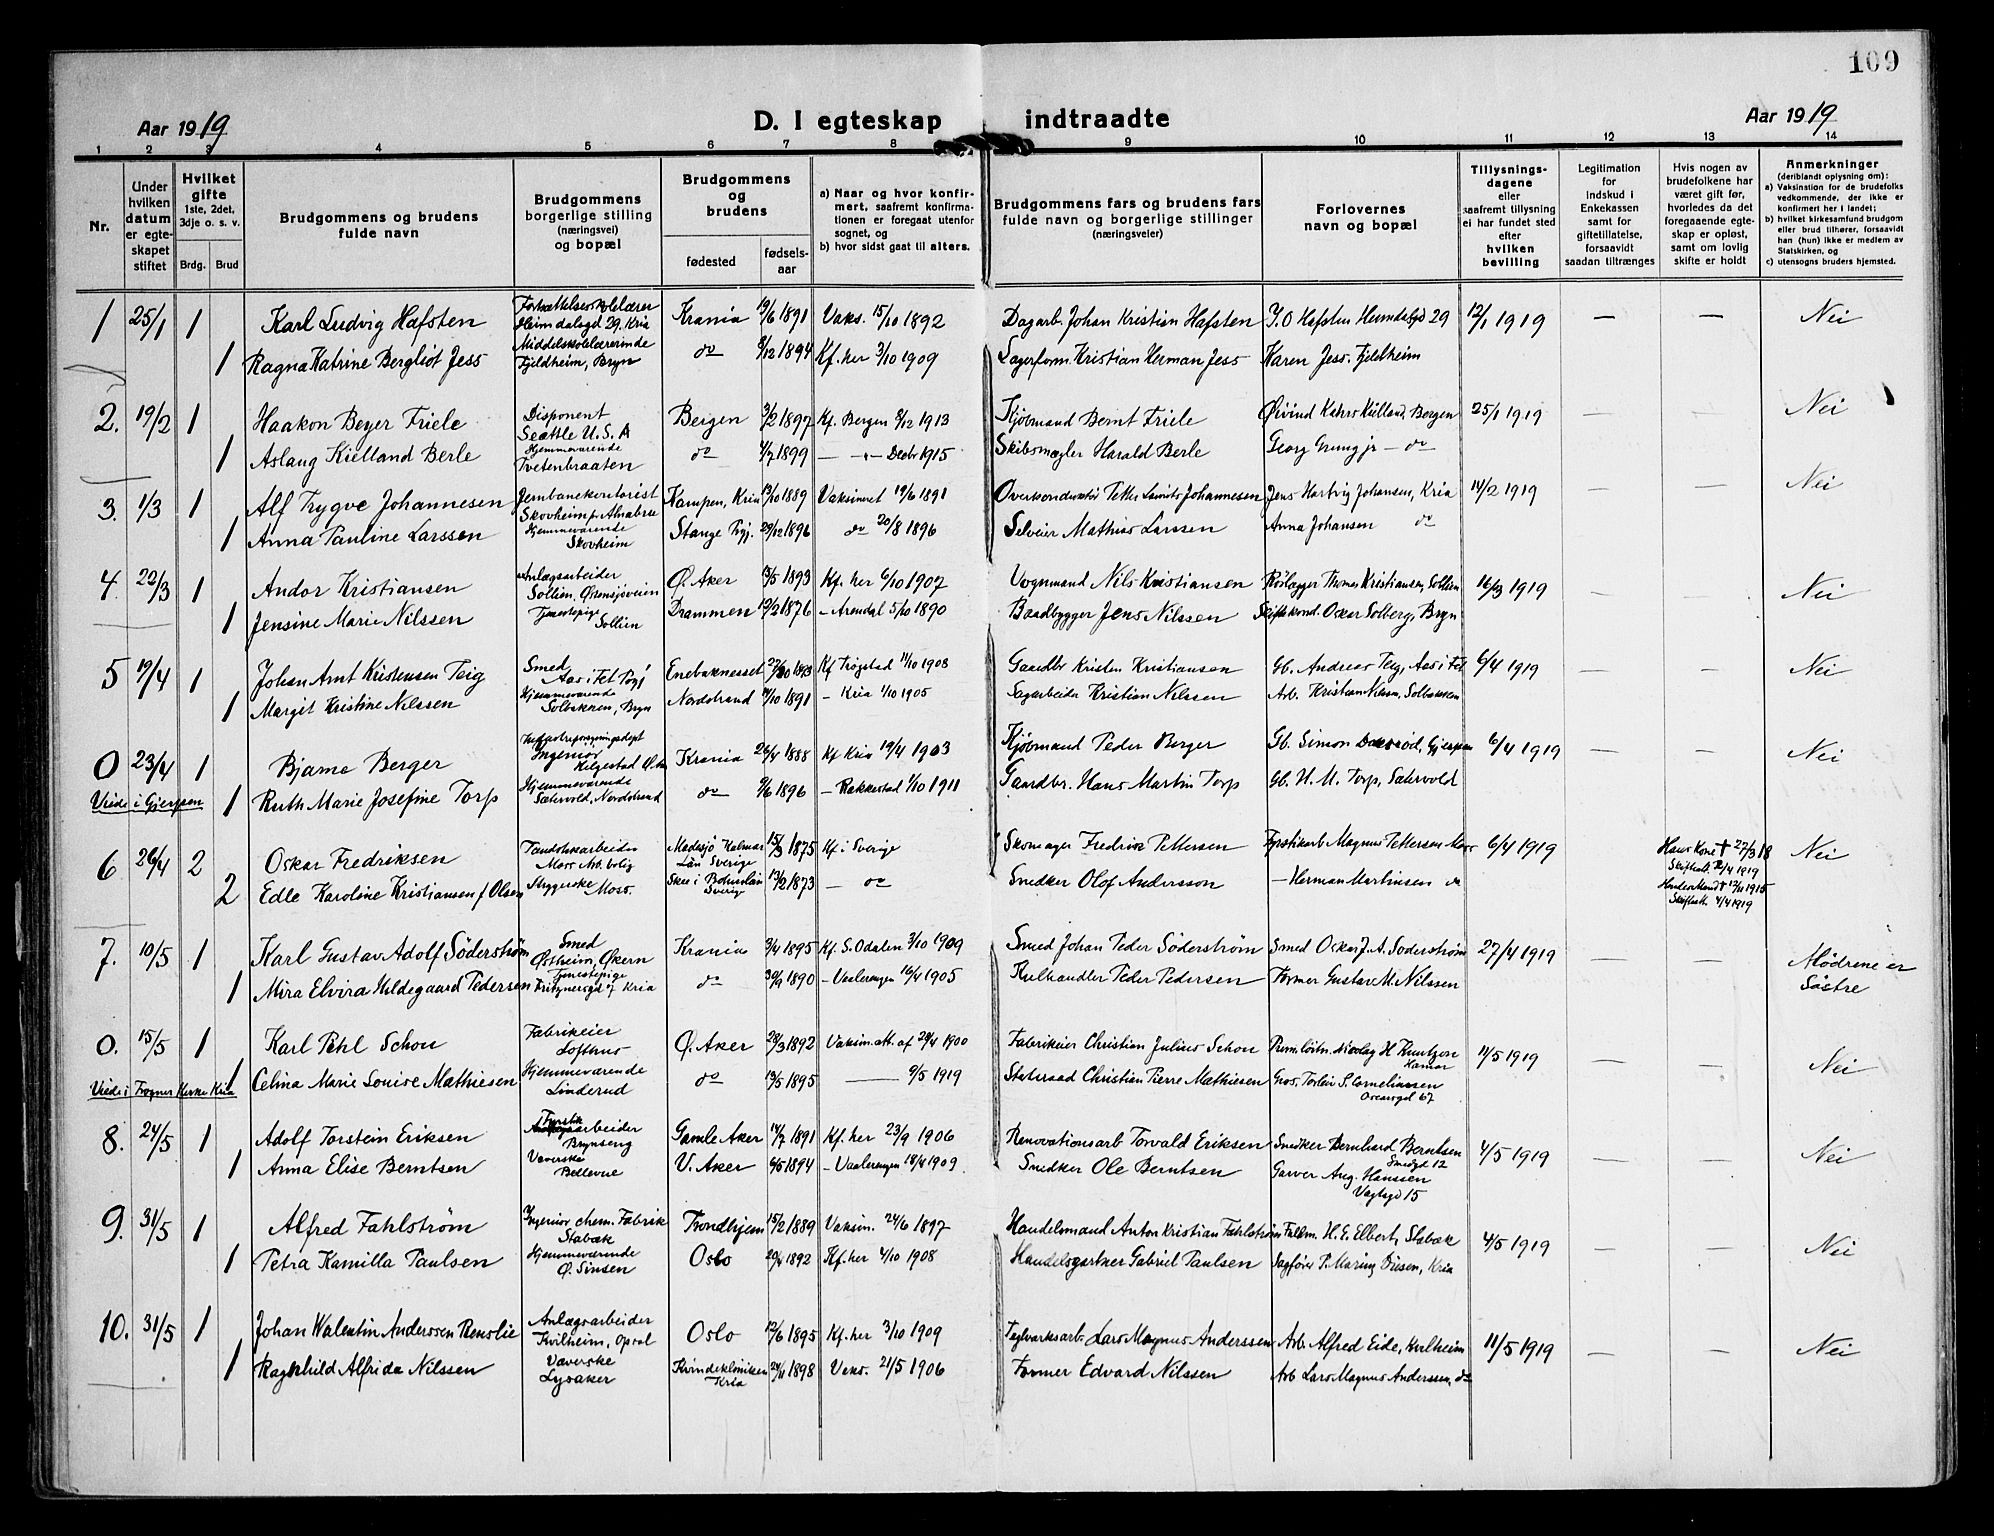 109
Aar 1919
D. I egteskap indtraadte
Aar 1919
1 2 3 4 5 6 7 8 9 10 11 12 13 14
Nr.
Under hvilken datum er egteskapet stiftet
Hvilket gifte 1ste, 2det, 3dje o. s. v.
Brdg. Brud
Brudgommens og brudens fulde navn
Brudgommens borgerlige stilling (næringsvei) og bopæl
Brudgommens og brudens
fødested
fødselsaar
a) Naar og hvor konfirmert, saafremt konfirmationen er foregaat utenfor sognet, og
b) hvor sidst gaat til alters.
Brudgommens fars og brudens fars fulde navn og borgerlige stillinger (næringsveier)
Forlovernes navn og bopæl
Tillysningsdagene eller saafremt tillysning ei har fundet sted efter hvilken bevilling
Legitimation for indskud i Enkekassen samt for giftetillatelse, forsaavidt saadan tiltrænges
Hvis nogen av brudefolkene har været gift før, hvorledes da det foregaaende egteskap er opløst, samt om lovlig skifte er holdt
Anmerkninger (deriblandt oplysning om):
a) Vaksination for de brudefolks vedkommende, der ikke er konfirmert her i landet;
b) hvilket kirkesamfund brudgom eller brud tilhører, forsaavidt han (hun) ikke er medlem av Statskirken, og
c) utensogns bruders hjemsted.
1 25/1 1 Karl Ludvig Hafsten Fortsættelsesskolelærer Heimdalsgd 29. Kria Krania 19/6 1891 Vaks. 15/10 1892 Dagarb. Johan Kristian Hafsten J.O Hafsten Heimdalsgd 29 12/1 1919 — — Nei
1 Ragna Katrine Bergliot Jess Middelskolelærerinde Fjeldheim, Bryn do 8/12 1894 Kf. her 3/10 1909 Lagerform. Kristian Herman Jess Karen Jess. Fjeldheim
2. 19/2 1 Haakon Beyer Friele Disponent Seattle U.S.A Bergen 3/2 1897 Kf. Bergen 8/12 1913 Kjøbmand Bernt Friele Øivind Kahrs Kielland, Bergen 25/1 1919 — — Nei
1 Aslaug Kielland Berle Hjemmeværende Tvetenbraaten do 4/7 1899 — " — Decbr 1915 Skibsmægler Harald Berle Georg Grung jr — do
3. 1/3 1 Alf Trygve Johannesen Jernbanekontorist Skovheim pr Alnabru Kampen, Kria 13/10 1889 Vaksineret 19/6 1891 Overkonduktør Petter Johannesen Jens Hartvig Johansen, Kria 14/2 1919 — — Nei
1 Anna Pauline Larssen Hjemmeværende Skovheim Stange Pgj. 29/12 1896 do 20/8 1896 Selveier Mathias Larssen Anna Johansen do
4. 22/3 1 Andor Kristiansen Anlægsarbeider Sollien, Østensjøveien Ø. Aker 13/5 1893 Kf. her 6/10 1907 Vognmand Nils Kristiansen Rørlægger Thomas Kristiansen, Sollien 16/3 1919 — — Nei
1 Jensine Marie Nilssen Tjenestepige Sollien Drammen 12/2 1876 — Arendal 5/10 1890 Baadbygger Jens Nilssen Skiftekond. Oscar Solberg, Bryn
5 19/4 1 Johan Arnt Kristensen Teig Smed Aas i Fet Pgj Enebaknesset Kf Trøgstad 11/10 1908 Gaardbr Kristen Kristiansen Gb. Andreas Teig, Aas i Fet 6/4 1919 — — Nei
1 Margit Kristine Nilssen Hjemmeværende Solbakken, Bryn Nordstrand 19/10 1891 — Kria 1/10 1905 Sagarbeider Kristian Nilssen Arb. Kristian Nilssen, Solbakken
0 23/4 1 Bjarne Berger Ingeniør Krania 26/4 1888 Kf Kria 19/4 1903 Kjøbmand Peder Berger Gb. Simon Gjerpen 6/4 1919 — — Nei
Viede i Gjerpen
1 Ruth Marie Josefine Torp Hjemmeværende Sætervold, Nordstrand do 9/6 1896 — Rakkestad 1/10 1911 Gaardbr. Hans Martin Torp Gb. H. M. Torp, Sætervold
6 26/4 2 Oskar Fredriksen Moss Arb.bolig Madesjø Kalmar Län Sverige 15/3 1875 Kf. i Sverige Skomager Fredrik Pettersen Fyrstikarb Magnus Pettersen Moss 6/4 1919 — Hans Kone † 27/3 18 Skifteatt. 12/4 1919 Nei
2 Edle Karoline Kristiansen f Olsen Strygerske Moss. Skee i Bohuslän Sverige 13/2 1873 — do Snedker Olof Andersson — Herman Martinsen do Hendes Mand † 12/11 1915 Skifteatt. 4/4 1919
7. 10/5 1 Karl Gustav Adolf Söderström Smed Østheim, Økern Krania 3/4 1895 Kf. S. Odalen 3/10 1909 Smed Johan Peder Söderström Smed Oskar J. A. Söderström 27/4 1919 — — Mødrene er Søstre
1 Mira Elvira Hildegaard Pedersen Tjenestepige Kria do 30/9 1890 — Vaalerengen 16/4 1905 Kulhandler Peder Pedersen Former Gustav M. Nilssen
0. 15/5 1 Karl Pihl Schou Fabrikeier Lofthus Ø. Aker 28/3 1892 Vaksin.att. af 29/4 1900 Fabrikeier Christian Julius Schou Prem.løitn. Nicolay H Knutzon Hamar 11/5 1919 — — Nei
Viede i Frogner Kirke Kria
1 Celina Marie Louise Mathiesen Hjemmeværende Linderud do 13/5 1895 — 9/5 1919 Statsraad Christian Pierre Mathiesen Gros. Torleiv S. Corneliussen Oscarsgd 67
8. 24/5 1 Adolf Torstein Eriksen Fyrstikarbeider Brynseng Gamle Aker 14/7 1891 Kf. her 23/9 1906 Renovationsarb Torvald Eriksen Snedker Bernhard Berntsen Smedgd 12 4/5 1919 — — Nei
1 Anna Elise Berntsen Væverske Bellevue V. Aker 6/5 1894 — Vaalerengen 18/4 1909. Snedker Ole Berntsen Garver Aug. Hanssen Vagtgd 15
9. 31/5 1 Alfred Fahlstrøm Ingeniør chem. Fabrik Stabæk Trondhjem 15/2 1889 Vaksin. 24/6 1897 Handelsmand Anton Kristian Fahlstrøm H. E. Elbert, Stabæk 4/5 1919 — — Nei
1 Petra Kamilla Paulsen Hjemmeværende Ø. Sinsen Oslo 20/4 1892 Kf. her 4/10 1908 Handelsgartner Gabriel Paulsen Sagfører P. Marius Kria
10. 31/5 1 Johan Walentin Anderssen Renslie Anlægsarbeider Kvilheim, Opsal Oslo 12/6 1895 Kf. her 3/10 1909 Teglverksarb. Lars Magnus Anderssen Arb. Alfred Eide, Kvilheim 11/5 1919 — — Nei
1 Ragnhild Alfrida Nilssen Væverske Lysaker Kvindeklinikken Kria 24/11 1898 Vaks. 21/5 1906 Former Edvard Nilssen Arb Lars Magnus Anderssen, do